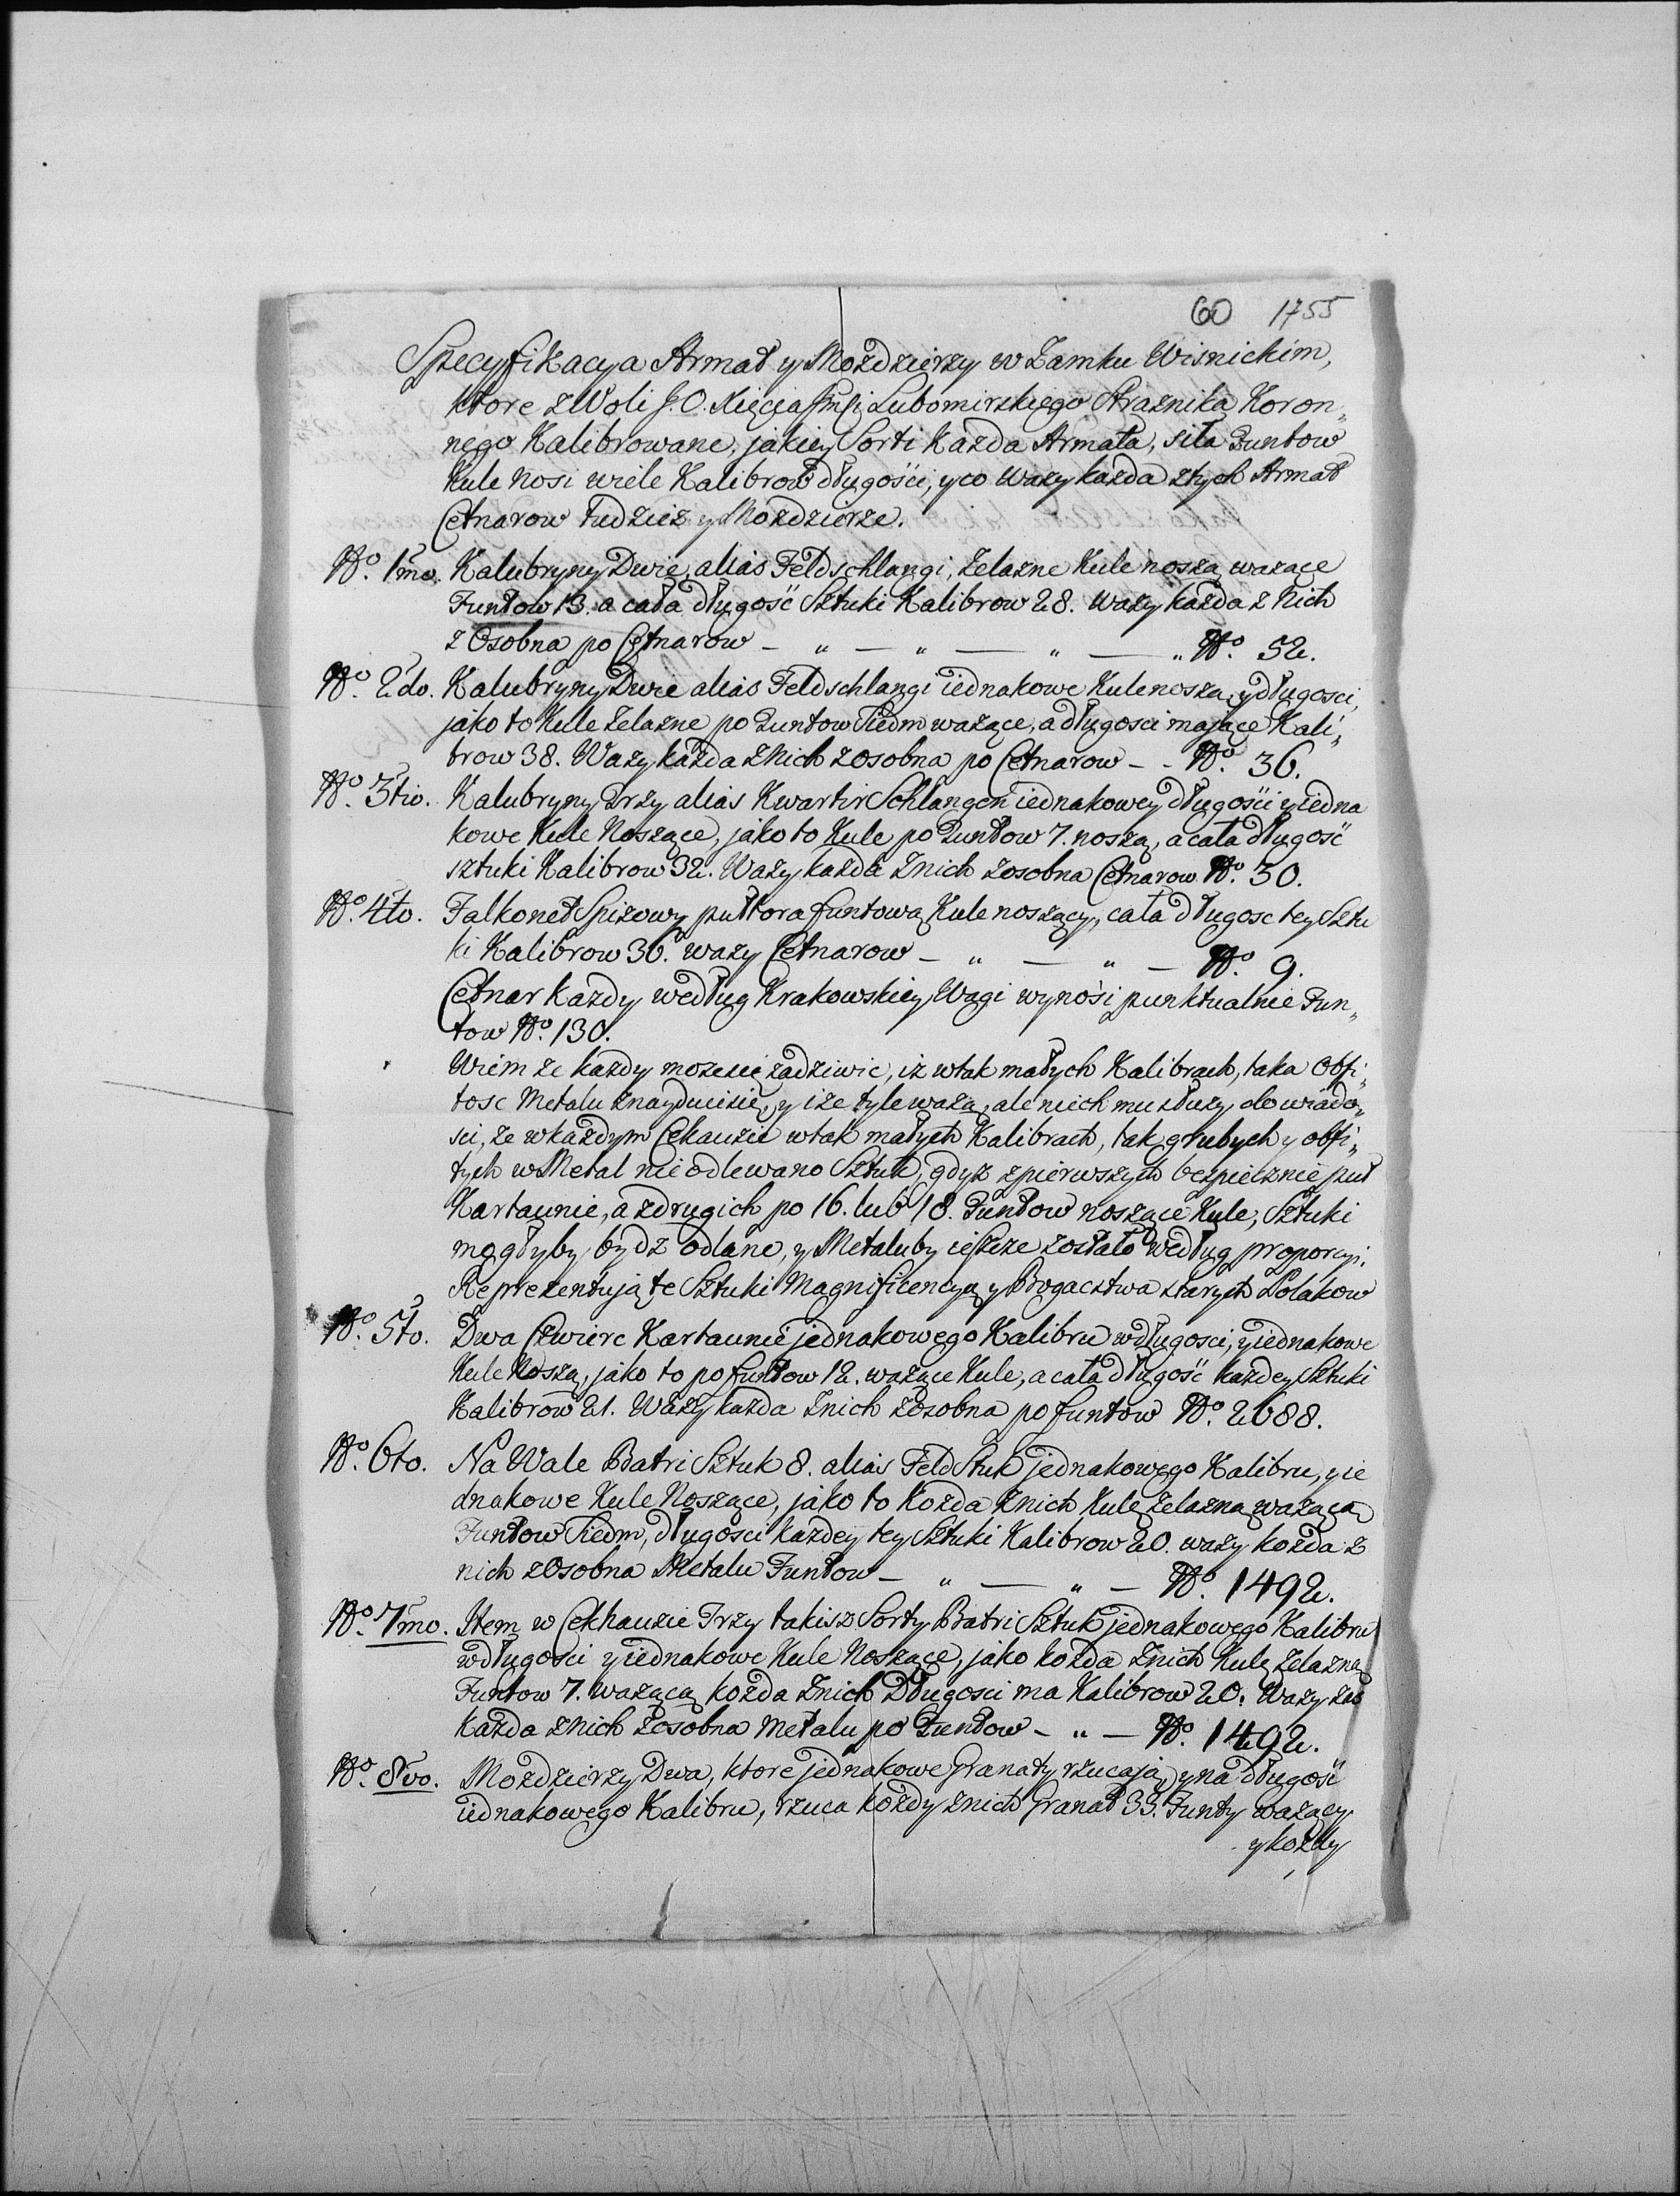 60 1755
Specyfikacya Armat y Mozdzierzy w Zamku Wisnickim,
ktore z Woli J. O. Xięcia Jmsi Lubomirskiego Straznika Koron„
nego Kalibrowane, jakiey Sorti kazda Armata, siła Funtow
Kule nosi wiele Kalibrow długości, y co wazy kazda z tych Armat
Cetnarow tudziez y Mozdzierze.
No. 1mo. Kalubryny Dwie, alias Feldschlangi, Zelazne Kule noszą wazące
Funtow 13. a cała długość Sztuki Kalibrow 28. wazy kazda z Nich
z Osobna po Cetnarow – „ — „ — „ — „ No. 52.
No. 2do. Kalubryny Dwie alias Feldschlangi iednakowe Kule noszą, y długosci,
jako to Kule Zelazne po Funtow Siedm wazące, a długosci mające Kali„
brow 38. Wazy kazda z Nich z osobna po Cetnarow – – No. 36.
No. 3tio. Kalubryny Trzy alias Kwartir Schlangen iednakowey długości y iedna
kowe Kule Noszące, jako to Kule po Funtow 7. noszą, a cała długość
sztuki Kalibrow 32. Wazy kazda z nich z osobna Cetnarow No. 30.
No. 4to. Falkonet Spizowy pułtora funtową Kule noszący, cała długosc tey Sztu
ki Kalibrow 36. wazy Cetnarow – „ — „ — No. 9.
Cetnar kazdy według Krakowskiey Wagi wynosi punktualnie Fun„
tow No. 130.
Wiem ze kazdy moze się zadziwic, iz w tak małych Kalibrach, taka obfi„
tosc Metalu znayduie się, y ize tyle wazą, ale niech mu słuzy do wiado„
sci, ze w kazdym Cekauzie w tak małych Kalibrach, tak grubych y obfi„
tych w Metal nie odlewano Sztuk, gdyz z pierwszych bezpiecznie puł
Kartaunie, a z drugich po 16. lub 18. Funtow noszące Kule, Sztuki
mogłyby bydz odlane, y Metaluby ieszcze zostało według proporcyi.
Reprezentują te Sztuki Magnificencyą y Bogactwa starych Polakow
No. 5to. Dwa Czwierc Kartaunie jednakowego Kalibru w długosci, y iednakowe
Kule Noszą, jako to po funtow 12. wazące Kule, a cała długość kazdey Sztuki
Kalibrow 21. Wazy kazda z nich z osobna po funtow No. 2688.
No. 6to. Na Wale Batri Sztuk 8. alias Feld Stuk jednakowego Kalibru, y ie
dnakowe Kule Noszące, jako to kozda z nich Kulę zelazną wazącą
Funtow Siedm, długosci kazdey tey Sztuki Kalibrow 20. wazy kozda z
nich z Osobna Metalu Funtow – „ — „ — No. 1492.
No. 7mo. Item w Cekhauzie Trzy takisz Sorty Batri Sztuk jednakowego Kalibru
w długosci y iednakowe Kule Noszące, jako kozda z nich Kulę zelazną
Funtow 7. wazącą kozda z nich Długosci ma Kalibrow 20. Wazy zas
kazda z nich z osobna Metalu po Funtow – „ — No. 1492.
No. 8vo. Mozdzierzy Dwa, ktore jednakowe Granaty rzucają, y na długość
iednakowego Kalibru, rzuca kozdy z nich Granat 33. Funty wazący
y kozdy